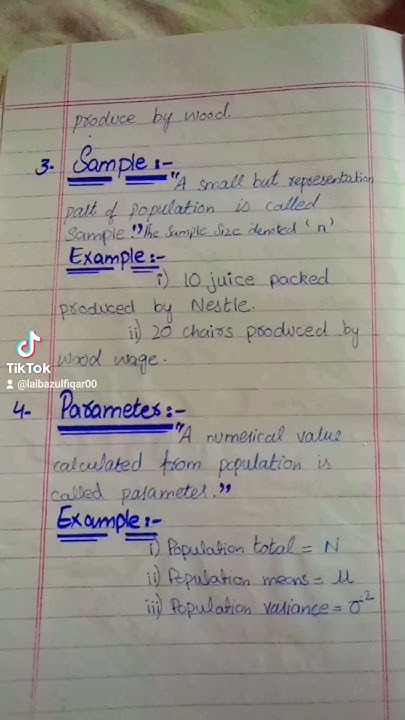 produce by wood.
3. Sample:-
"A small but representation
part of population is called
Sample." The Sample Size denoted 'n'
Example:-
i) 10 juice packed
produced by Nestle.
ii) 20 chairs produced by
wood wage.
TikTok
@laibazulfiqar00
4. Parameter:-
"A numerical value
calculated from population is
called parameter."
Example:-
i) Population total = N
ii) Population means = μ
iii) Population variance = σ²